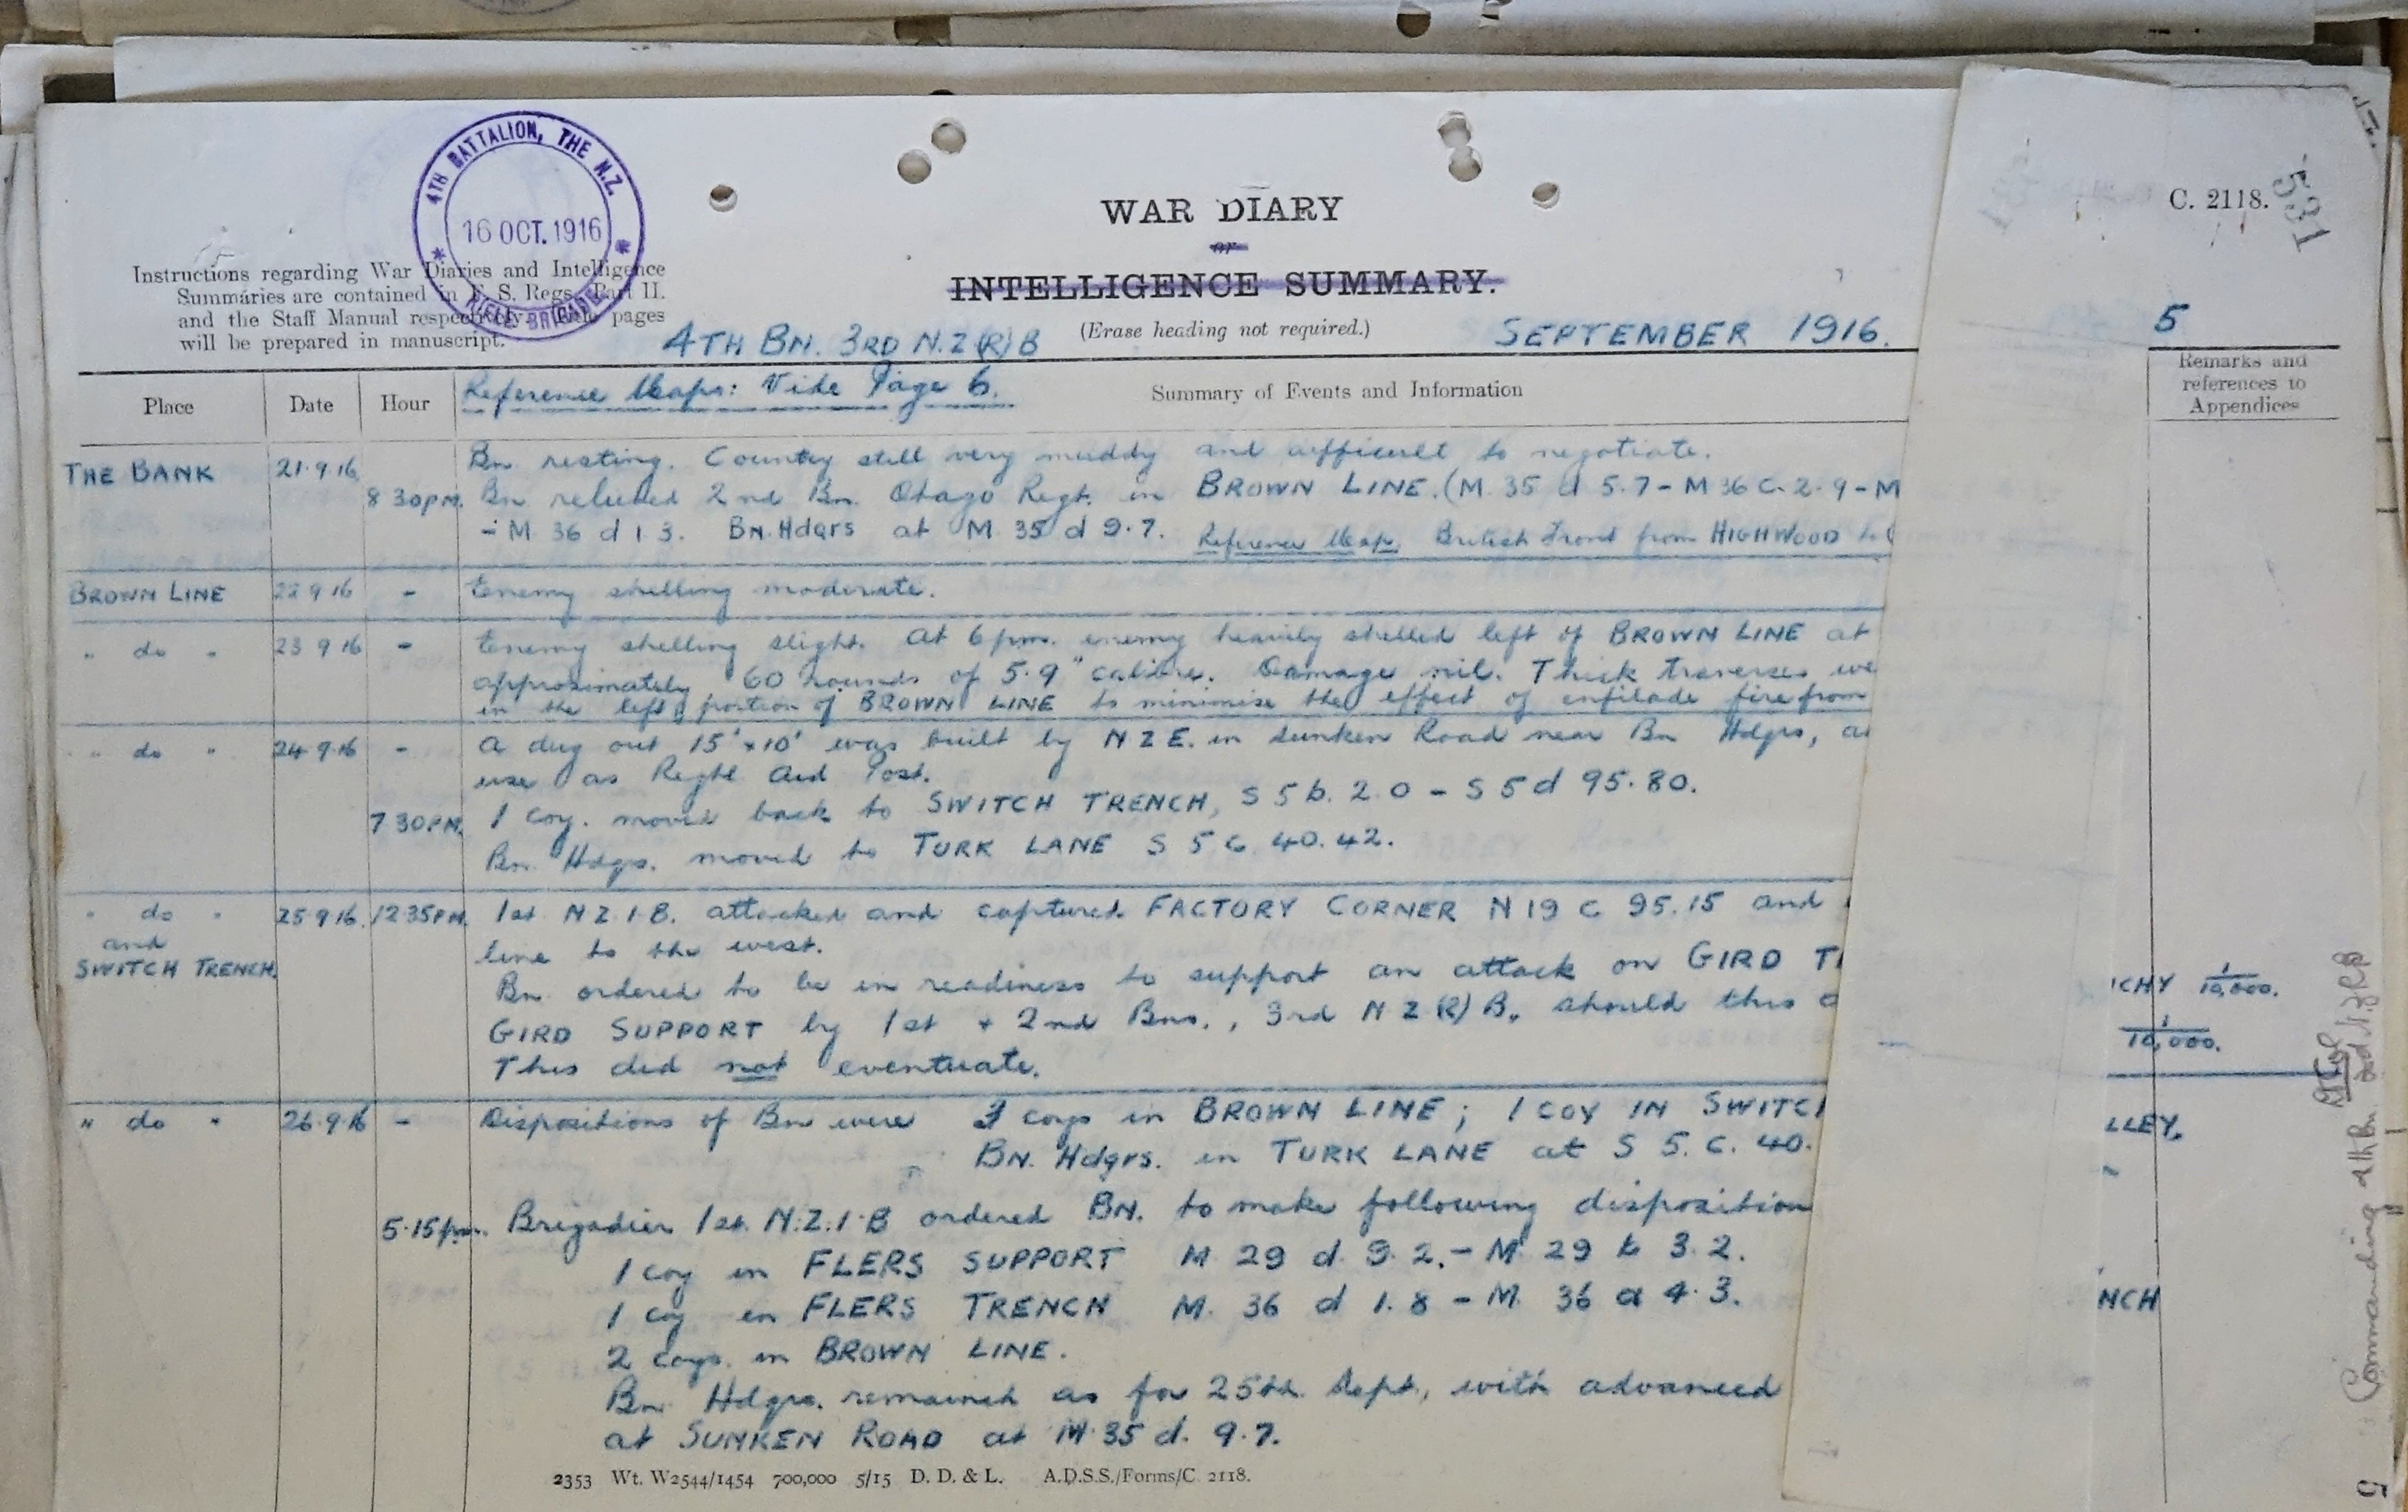 4TH BATTALION, THE N.Z.
16 OCT. 1916
RIFLE BRIGADE
WAR DIARY
or
INTELLIGENCE SUMMARY.
(Erase heading not required.)
Instructions regarding War Diaries and Intelligence
Summaries are contained in F. S. Regs., Part II.
and the Staff Manual respectively. pages
will be prepared in manuscript.
4TH BN. 3RD N.Z (R) B
SEPTEMBER 1916.
C. 2118.
531
5
Place Date Hour Reference Maps: Vide Page 6. Summary of Events and Information
Remarks and
references to
Appendices
THE BANK 21.9.16 Bn resting. Country still very muddy and difficult to negotiate.
8 30PM. Bn relieved 2nd Bn. Otago Regt. in BROWN LINE. (M. 35 d 5.7 - M 36 c. 2.9 - M
- M 36 d 1 3. BN. Hdqrs at M 35 d 9.7. Reference Map. British Front from HIGHWOOD to
BROWN LINE 22 9 16 - Enemy shelling moderate.
" do " 23 9 16 - Enemy shelling slight. At 6 pm. enemy heavily shelled left of BROWN LINE at
approximately 60 rounds of 5.9" calibre. Damage nil. Thick traverses we
in the left portion of BROWN LINE to minimise the effect of enfilade fire from
" do " 24.9.16 - A dug out 15' x 10' was built by N Z E. in Sunken Road near Bn Hdqrs,
use as Regtl Aid Post.
7 30PM. 1 Coy. moved back to SWITCH TRENCH, S 5 b. 2.0 - S 5 d 95.80.
Bn. Hdqrs. moved to TURK LANE S 5 c 40.42.
" do " 25 9 16. 12 35PM. 1st N Z. I. B. attacked and captured FACTORY CORNER N 19 c 95.15 and
and line to the west.
SWITCH TRENCH. Bn ordered to be in readiness to support an attack on GIRD T
GIRD SUPPORT by 1st + 2nd Bns., 3rd N Z (R) B. should this
This did not eventuate.
" do " 26.9.16 - Dispositions of Bn were 3 coys in BROWN LINE; 1 COY IN SWITC
BN. Hdqrs. in TURK LANE at S 5. C. 40.
5.15pm. Brigadier 1st. N.Z.I.B ordered BN. to make following disposition
1 coy in FLERS SUPPORT M 29 d. 9.2. - M 29 b 3.2.
1 coy in FLERS TRENCH M. 36 d 1.8 - M. 36 a 4.3.
2 coys. in BROWN LINE.
Bn Hdqrs. remained as for 25th Sept., with advanced
at SUNKEN ROAD at M 35 d. 9.7.
ICHY 1/10,000.
1/10,000.
LLEY.
NCH
Commanding 4th Bn.
2353 Wt. W2544/1454 700,000 5/15 D. D. & L. A.D.S.S./Forms/C. 2118.